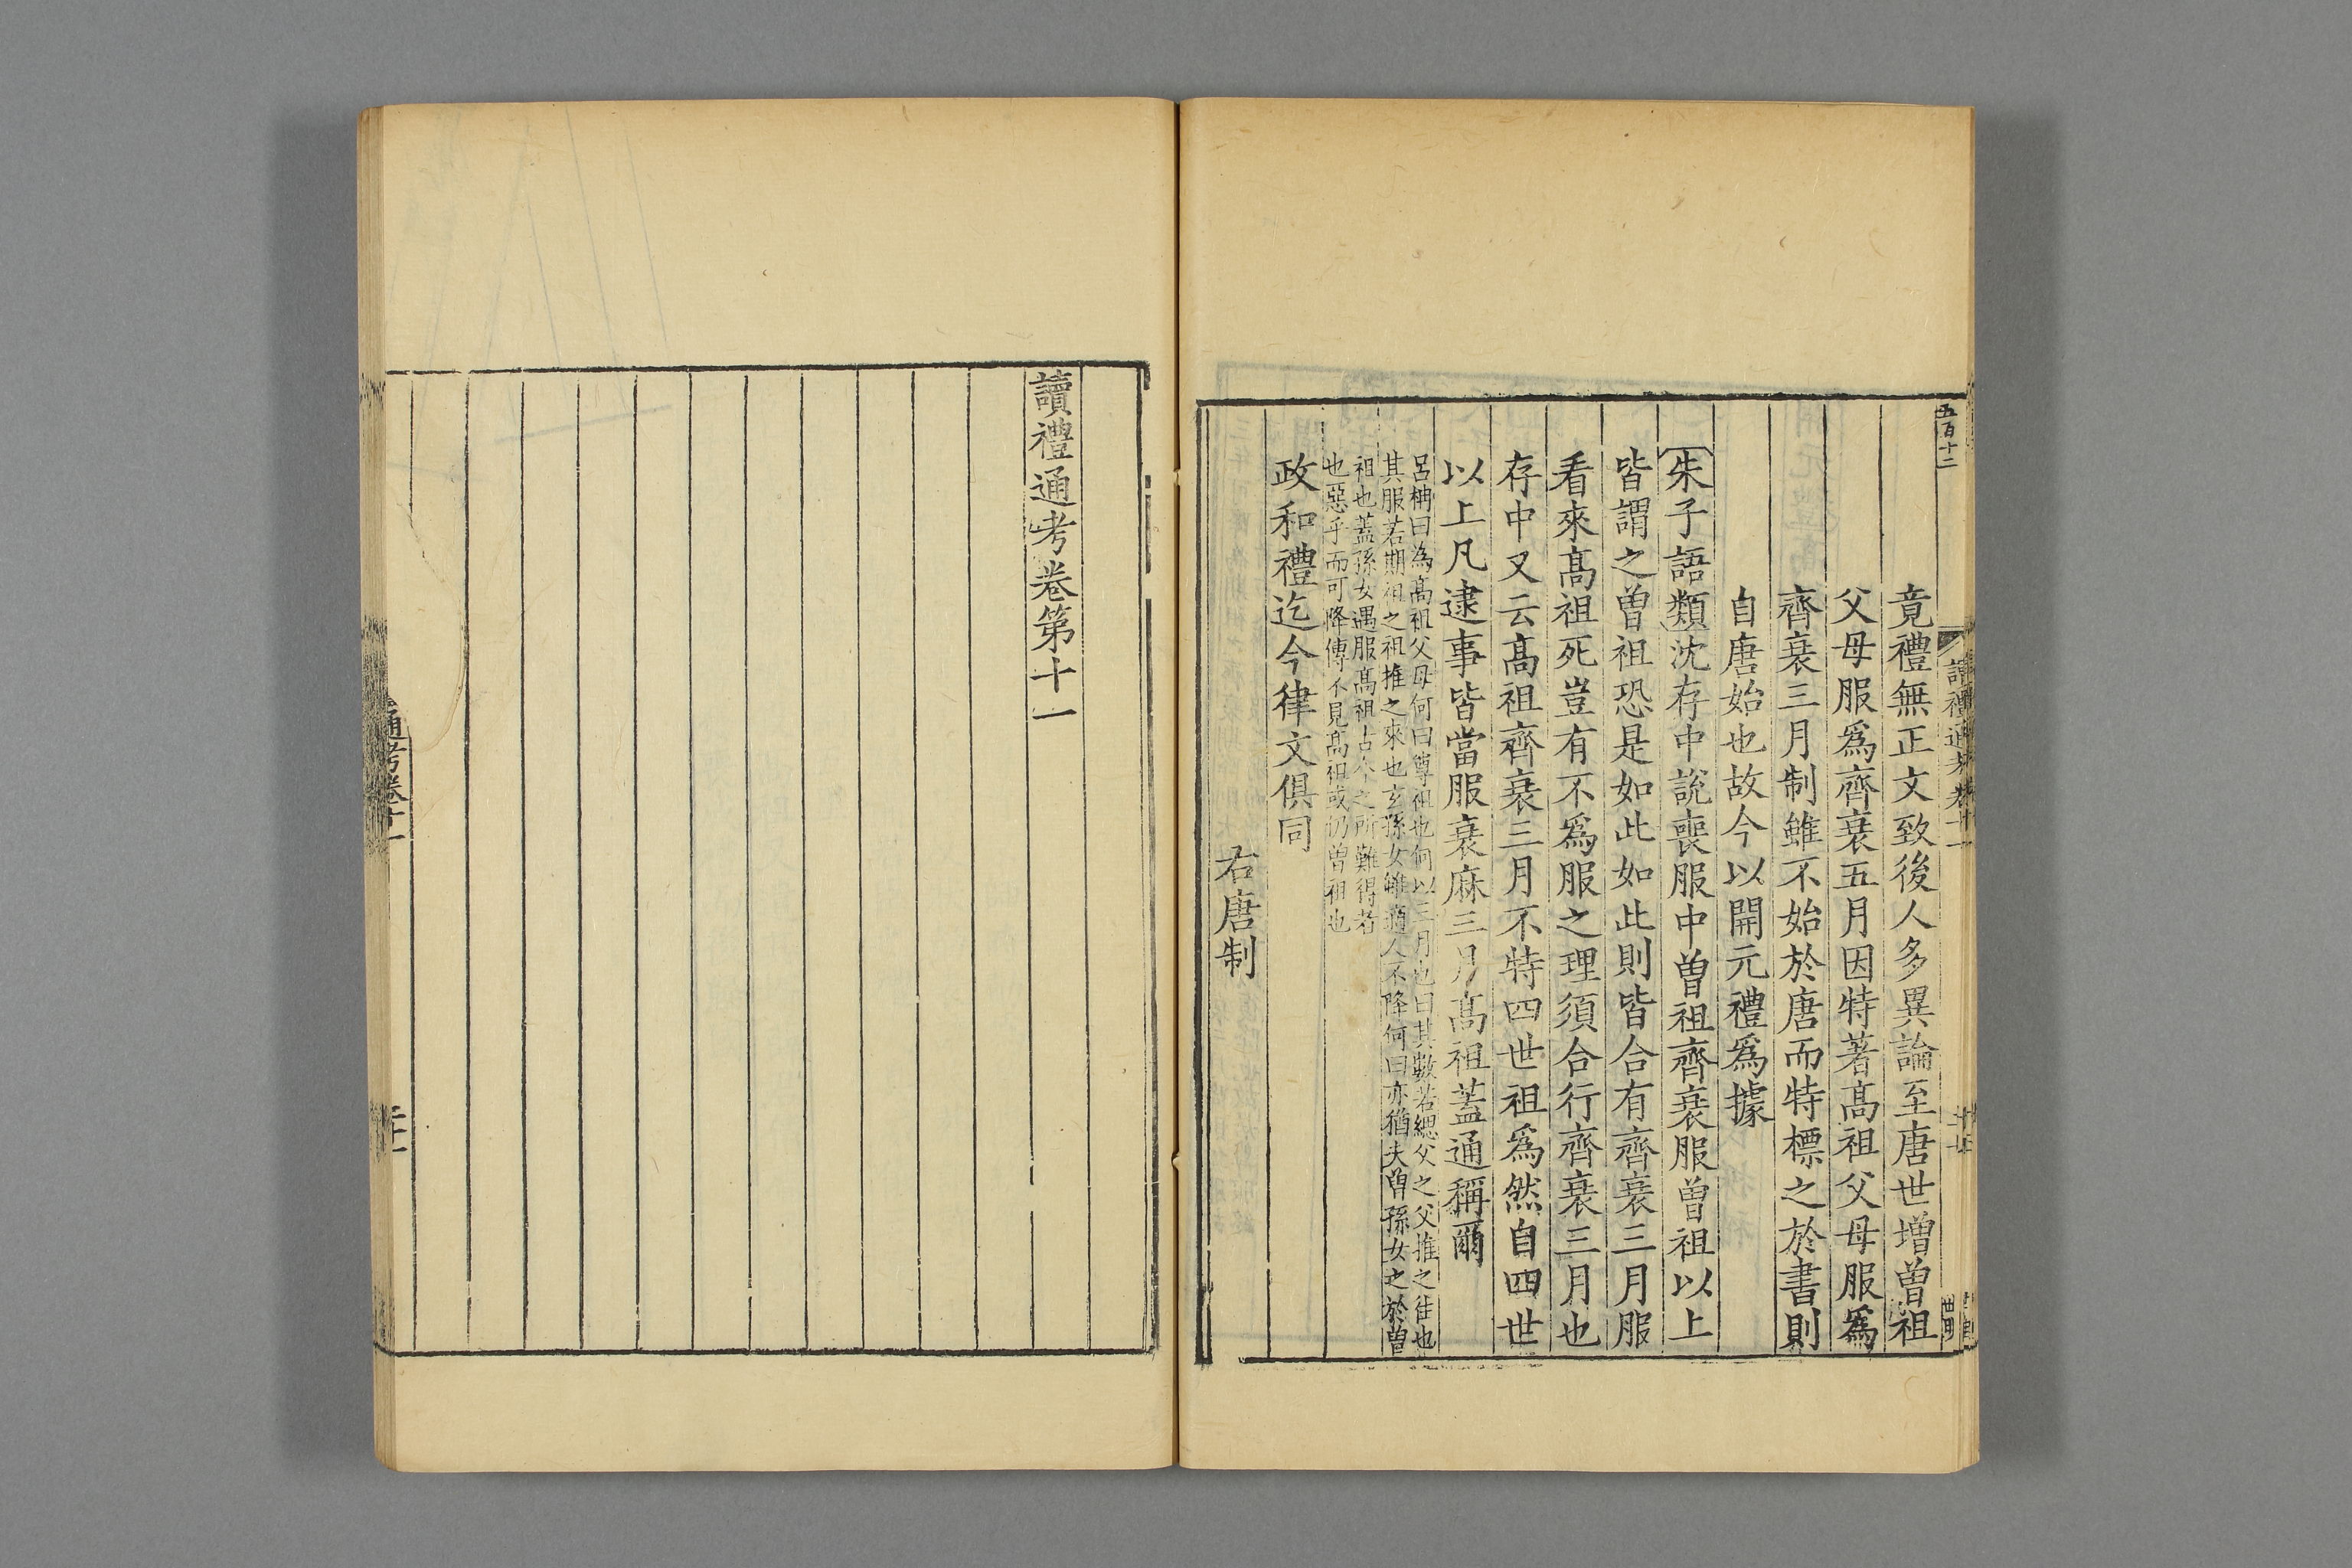 五百十二
竟禮無正文致後人多異論至唐世增曾祖
父母服爲齊衰五月因特著髙祖父母服爲
齊衰三月制雖不始於唐而特標之於書則
自唐始也故今以開元禮爲據
朱子語類沈存中說喪服中曾祖齊衰服曾祖以上
皆謂之曾祖恐是如此如此則皆合有齊衰三月服
看來髙祖死豈有不爲服之理須合行齊衰三月也
存中又云髙祖齊衰三月不特四世祖爲然自四世
以上凡逮事皆當服衰麻三月髙祖葢通稱爾
呂柟曰為髙祖父母何曰尊祖也何以三月也曰其數若緦父之父推之徃也
其服若期祖之祖推之來也玄孫女雖適人不降何曰亦猶夫曾孫女之於曾
祖也葢孫女遇服髙祖古今之所難得者
也惡乎而可降傳不見髙祖或仍曾祖也
政和禮迄今律文俱同
右唐制
讀禮通考卷第十一
通考卷十一